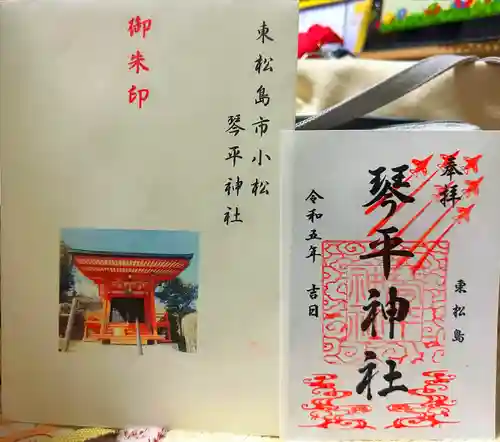 御朱印
東松島市小松
琴平神社
奉拝
東松島
琴平神社
令和五年 吉日